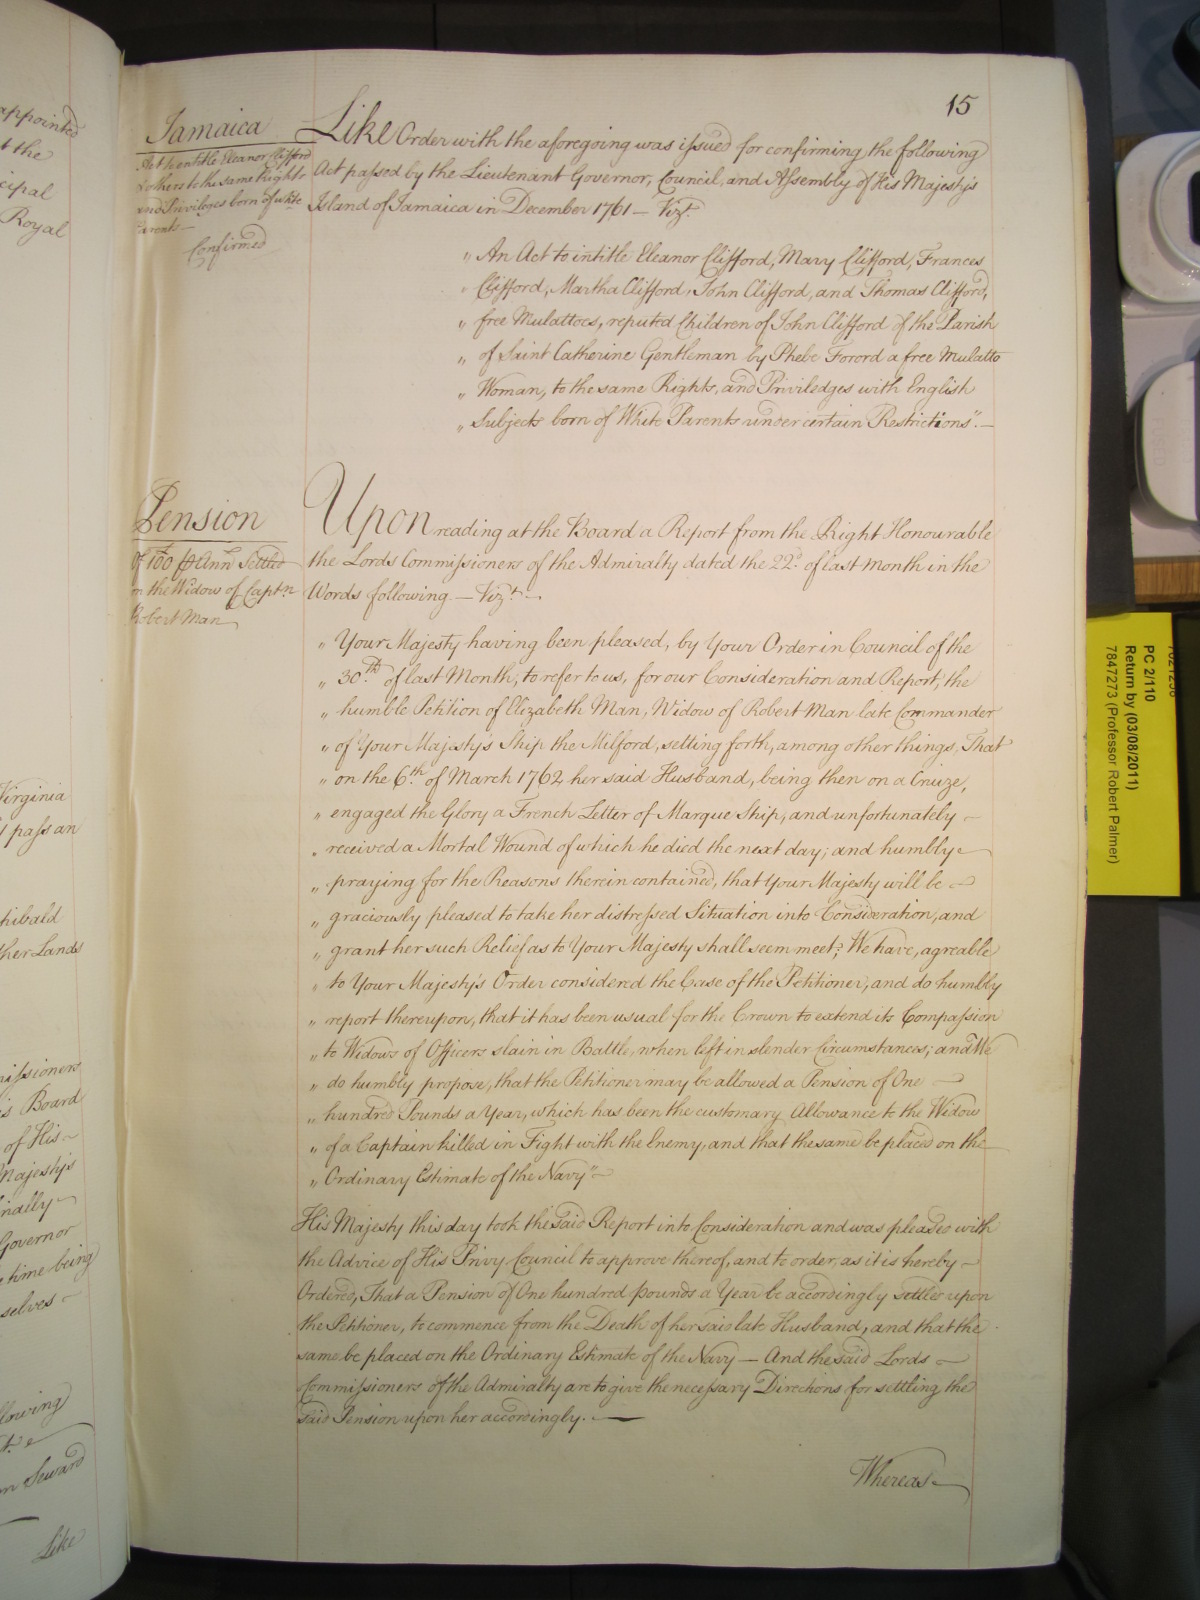 appointed
t the
cipal
Royal
Virginia
pass an
chibald
ther Lands
missioners
is Board
of His
Majesty's
nally
Governor
e time being
selves
llowing
m Seward
Like
15
Jamaica
Act to entitle Eleanor Clifford
& others to the same Rights
and Privileges born of white
Parents
Confirmed
Like Order with the aforegoing was issued for confirming the following
Act passed by the Lieutenant Governor, Council, and Assembly of His Majesty's
Island of Jamaica in December 1761 — Vizt.
„ An Act to intitle Eleanor Clifford, Mary Clifford, Frances
„ Clifford, Martha Clifford, John Clifford, and Thomas Clifford,
„ free Mulattoes, reputed Children of John Clifford of the Parish
„ of Saint Catherine Gentleman by Phebe Forord a free Mulatto
„ Woman, to the same Rights, and Priviledges with English
„ Subjects born of White Parents under certain Restrictions". —
Pension
of 100 £ p Ann. Settled
on the Widow of Captn.
Robert Man
Upon reading at the Board a Report from the Right Honourable
the Lords Commissioners of the Admiralty dated the 22d. of last Month in the
Words following — Vizt. —
„ Your Majesty having been pleased, by Your Order in Council of the
„ 30th. of last Month, to refer to us, for our Consideration and Report, the
„ humble Petition of Elizabeth Man, Widow of Robert Man late Commander
„ of Your Majesty's Ship the Milford, setting forth, among other things, That
„ on the 6th. of March 1762 her said Husband, being then on a Cruize,
„ engaged the Glory a French Letter of Marque Ship, and unfortunately
„ received a Mortal Wound of which he died the next day; and humbly
„ praying for the Reasons therein contained, that Your Majesty will be
„ graciously pleased to take her distressed Situation into Consideration, and
„ grant her such Relief as to Your Majesty shall seem meet; We have, agreable
„ to Your Majesty's Order considered the Case of the Petitioner, and do humbly
„ report thereupon, that it has been usual for the Crown to extend its Compassion
„ to Widows of Officers slain in Battle, when left in slender Circumstances; and We
„ do humbly propose, that the Petitioner may be allowed a Pension of One
„ hundred Pounds a Year, which has been the customary Allowance to the Widow
„ of a Captain killed in Fight with the Enemy, and that the same be placed on the
„ Ordinary Estimate of the Navy"
His Majesty this day took the said Report into Consideration and was pleased with
the Advice of His Privy Council to approve thereof, and to order, as it is hereby
Ordered, That a Pension of One hundred pounds a Year be accordingly settled upon
the Petitioner, to commence from the Death of her said late Husband, and that the
same be placed on the Ordinary Estimate of the Navy — And the said Lords
Commissioners of the Admiralty are to give the necessary Directions for settling the
said Pension upon her accordingly. —
Whereas
PC 2/110
Return by (03/08/2011)
7847273 (Professor Robert Palmer)